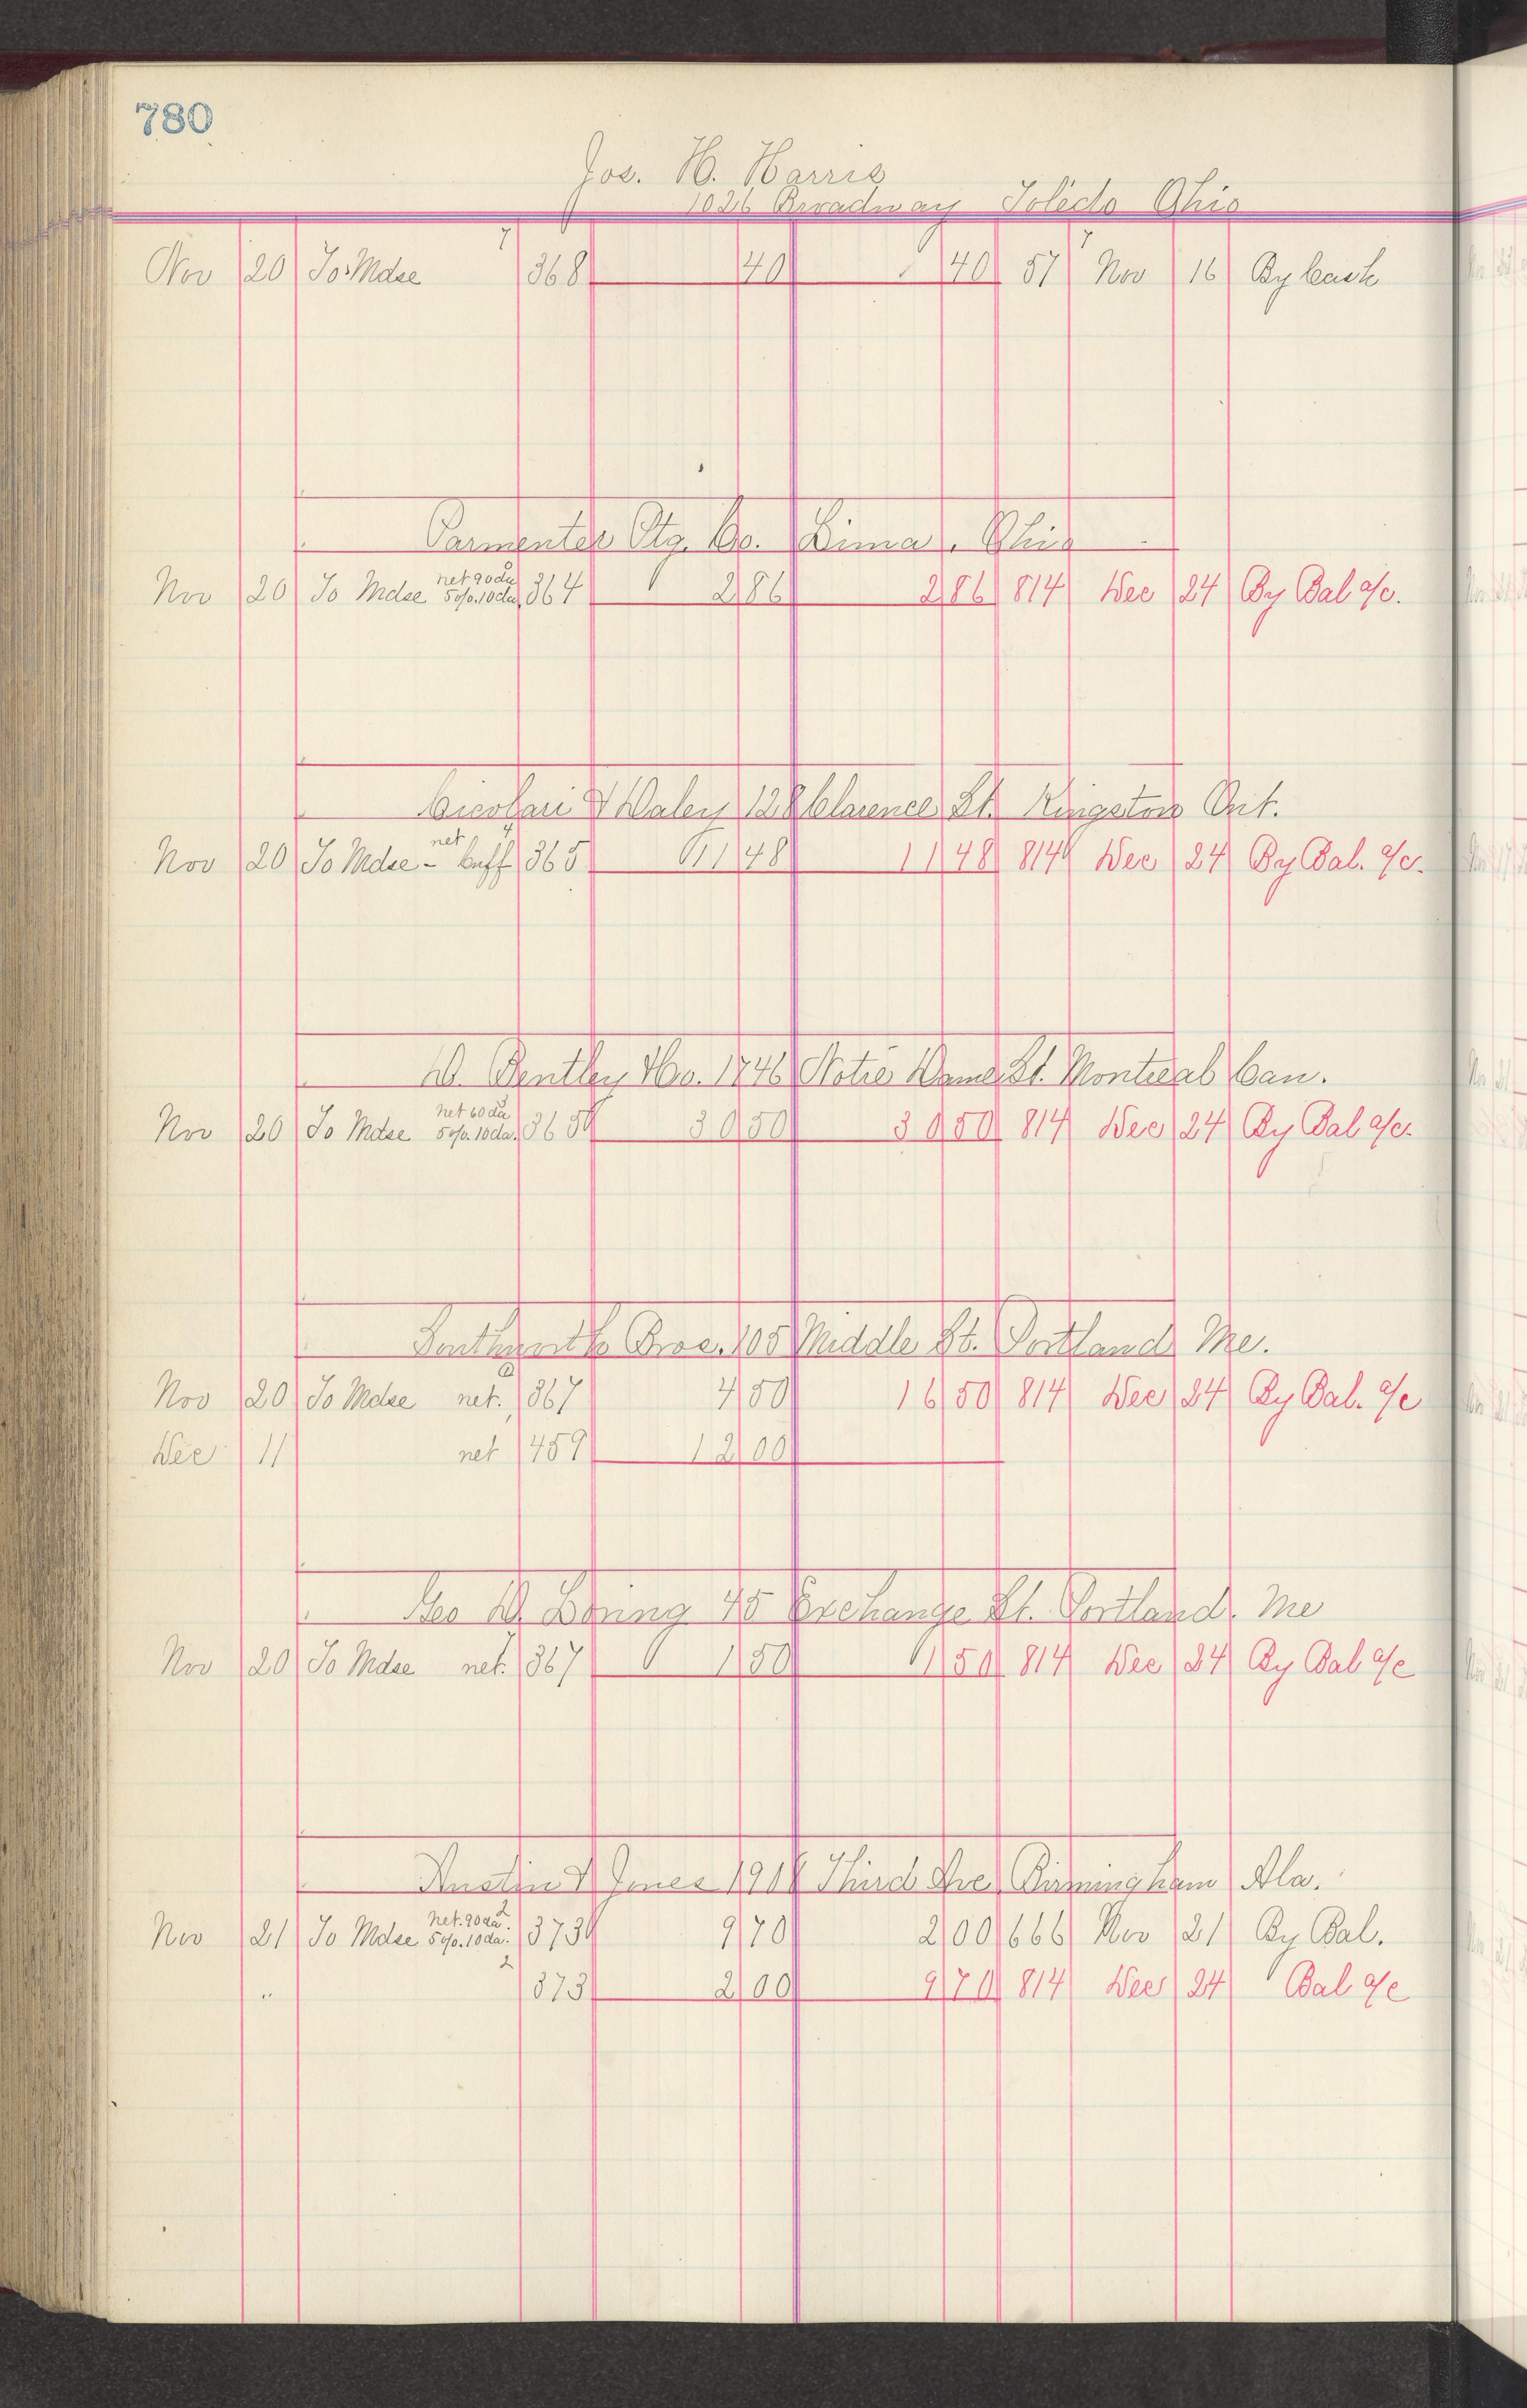 780
Jos. H. Harris
1026 Broadway Toledo Ohio
Nov 20 To Mdse 7 368 40 40 57 Nov 16 By Cash
Parmenter Ptg. Co. Lima, Ohio
net 90 da
Nov 20 To Mdse 5%.10da. 364 2 86 2 86 814 Dec 24 By Bal a/c.
& Daley 128 Clarence St. Kingston Ont.
net
Nov 20 To Mdse - Buff 365 11 48 11 48 814 Dec 24 By Bal. a/c.
D. Bentley & Co. 1746 Notre Dame St. Montreal Can.
net 60 da
Nov 20 To Mdse 5%.10da. 365 30 50 30 50 814 Dec 24 By Bal a/c.
Southworth Bros. 105 Middle St. Portland, Me.
Nov 20 To Mdse net. 367 4 50 16 50 814 Dec 24 By Bal. a/c
Dec 11 net 459 12 00
Geo D. Loring 45 Exchange St. Portland. Me
Nov 20 To Mdse net. 367 1 50 1 50 814 Dec 24 By Bal a/c
Austin & Jones Third Ave Birmingham Ala.
net. 90 da. 2
Nov 21 To Mdse 5%.10da. 373 9 70 2 00 666 Nov 21 By Bal.
" 2 373 2 00 9 70 814 Dec 24 Bal a/c